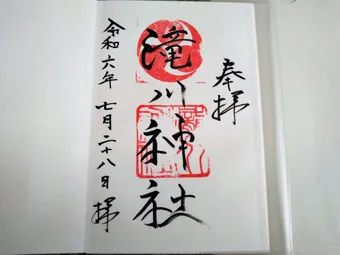 奉拝
滝川神社
令和六年七月二十八日拝